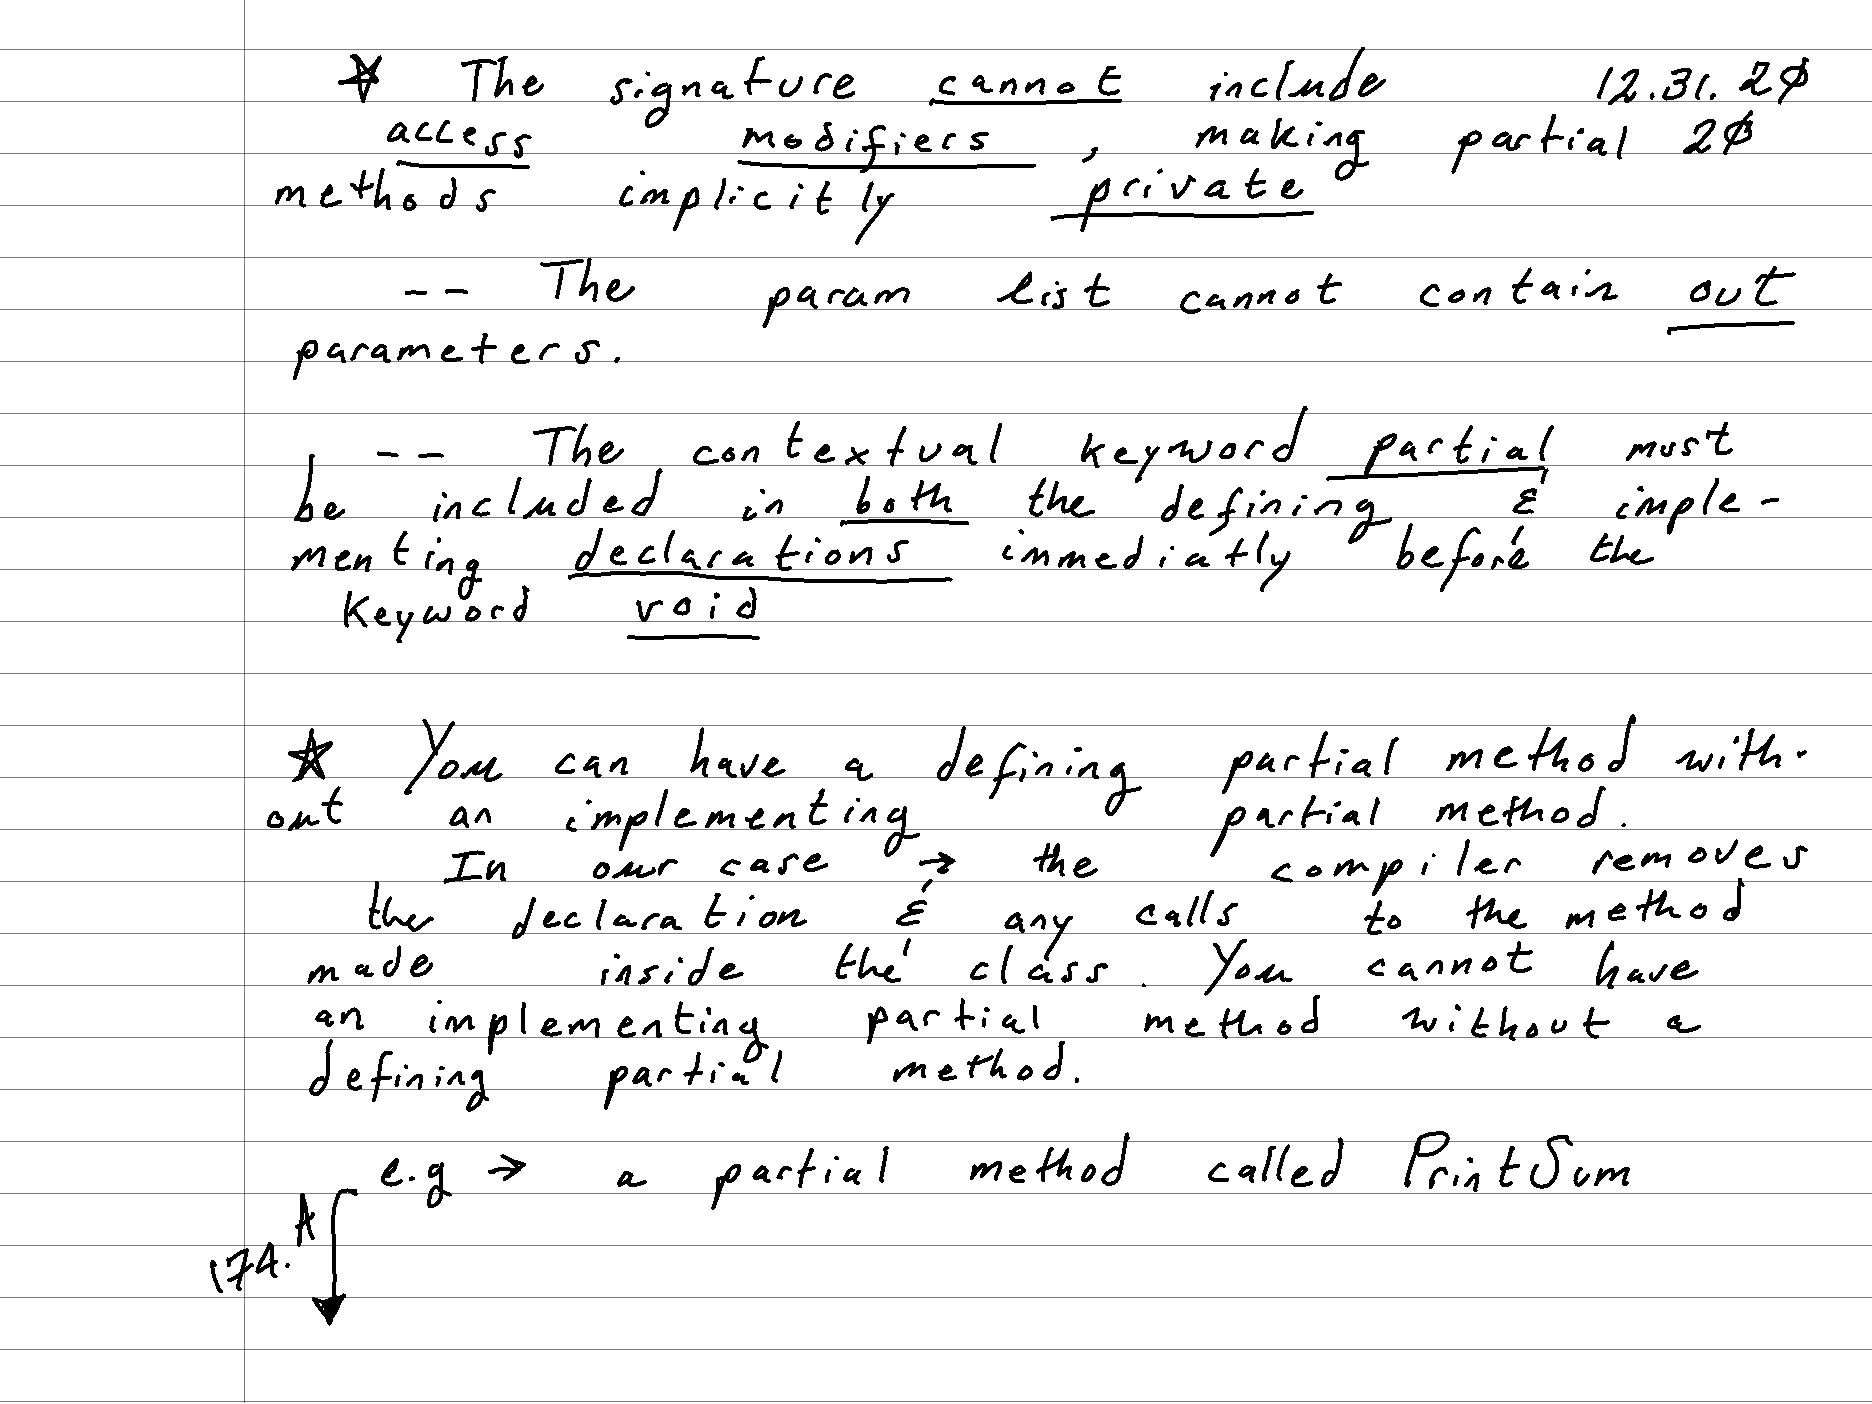 ☆ The signature cannot include 12.31.2∅
access modifiers, making partial 2∅
methods implicitly private
-- The param list cannot contain out
parameters.
-- The contextual keyword partial must
be included in both the defining & imple-
menting declarations immediatly before the
keyword void
☆ You can have a defining partial method with-
out an implementing partial method.
In our case → the compiler removes
the declaration & any calls to the method
made inside the class. You cannot have
an implementing partial method without a
defining partial method.
e.g → a partial method called PrintSum
174.A